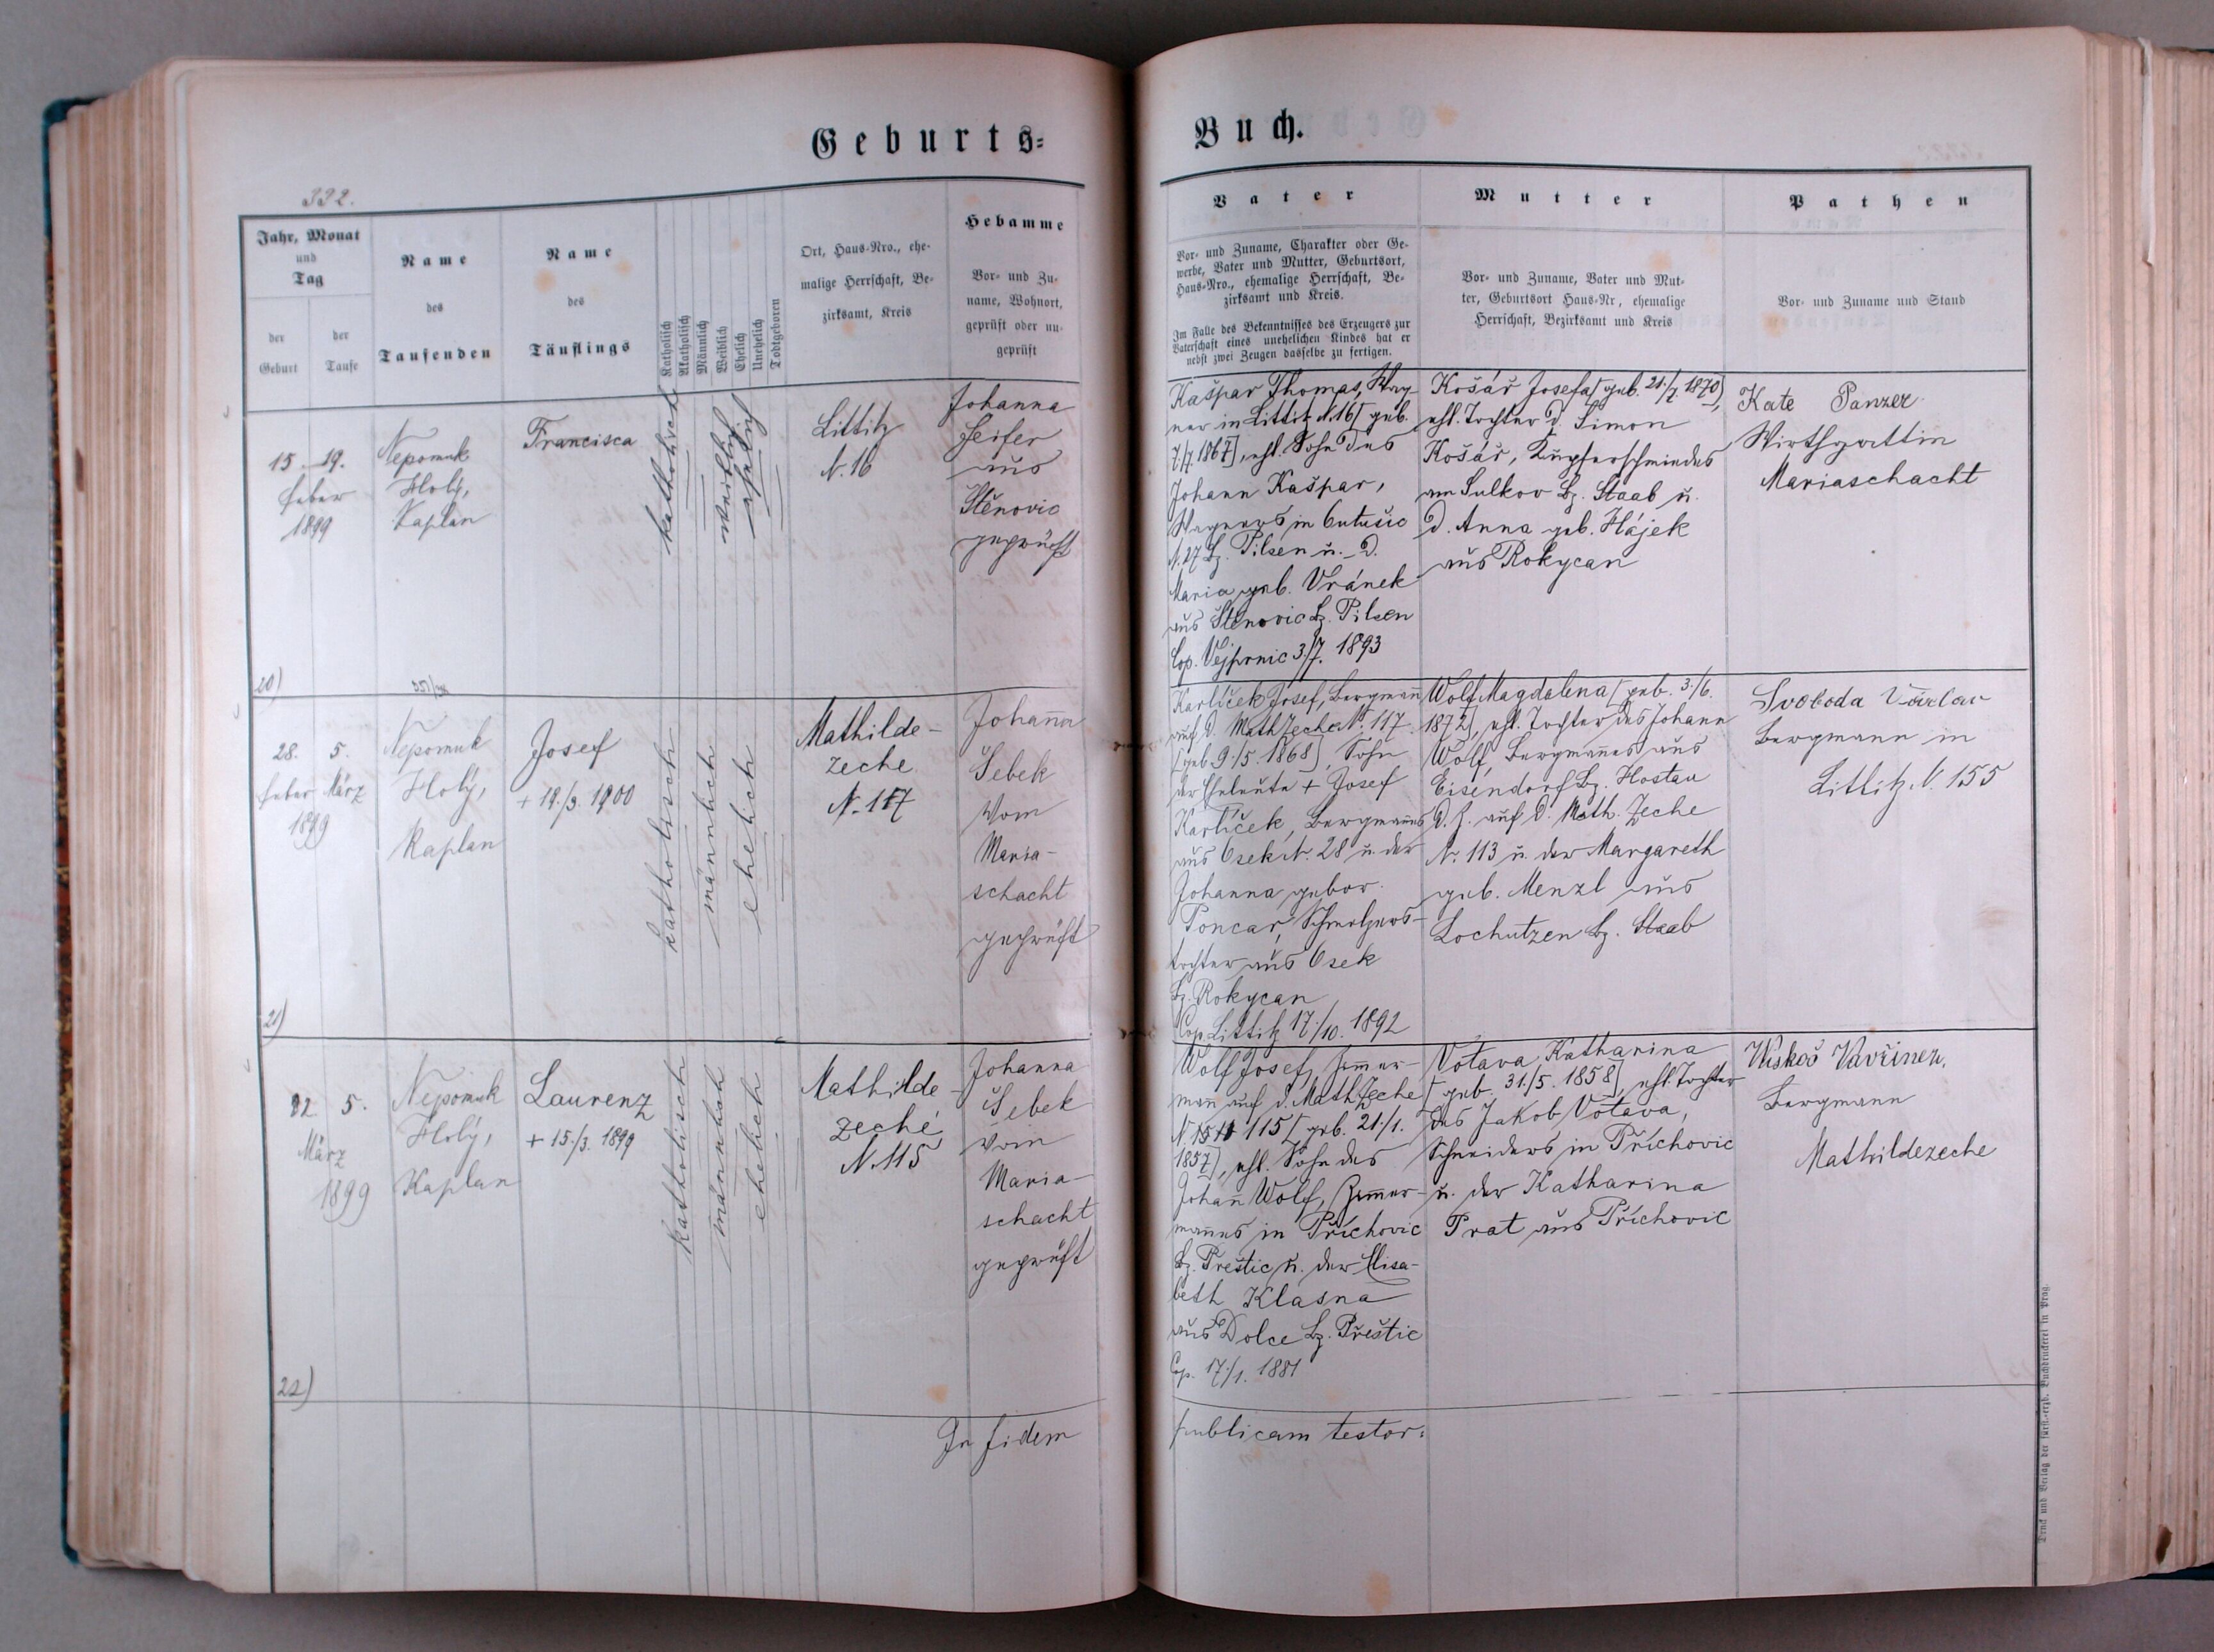 Geburts=
Buch.
332.
Jahr, Monat
und
Tag
der
Geburt
der
Taufe
Name
des
Taufenden
Name
des
Täuflings
Katholisch
Akatholisch
Männlich
Weiblich
Ehelich
Unehelich
Todtgeboren
Ort, Haus-Nro., ehe-
malige Herrschaft, Be-
zirksamt, Kreis
Hebamme
Vor- und Zu-
name, Wohnort,
geprüft oder un-
geprüft
Vater
Vor- und Zuname, Charakter oder Ge-
werbe, Vater und Mutter, Geburtsort,
Haus-Nro., ehemalige Herrschaft, Be-
zirksamt und Kreis.
Im Falle des Bekenntnisses des Erzeugers zur
Vaterschaft eines unehelichen Kindes hat er
nebst zwei Zeugen dasselbe zu fertigen.
Mutter
Vor- und Zuname, Vater und Mut-
ter, Geburtsort Haus-Nr, ehemalige
Herrschaft, Bezirksamt und Kreis
Pathen
Vor- und Zuname und Stand
15. 19.
Feber
1899
Nepomuk
Holý,
Kaplan
Francisca
katholisch
weiblich
ehelich
Littitz
N. 16
Johanna
Seifer
aus
Štěnovic
geprüft
Kašpar Thomas, Wag-
ner in Littitz N. 16 [geb.
7/7. 1867], ehl. Sohn des
Johann Kašpar,
Wagners in Cutušic
N. 27 Bz. Pilsen u. d.
Maria geb. Vránek
aus Štěnovic Bz. Pilsen
Cop. Vejprnic 3./7. 1893
Košář Josefa [geb. 21./7. 1870],
ehl. Tochter d. Simon
Košář, Kupferschmiedes
am Sulkov Bz. Staab u.
d. Anna geb. Hájek
aus Rokycan
Kate Panzer
Wirthgattin
Mariaschacht
20)
28. 5.
Feber März
1899
Nepomuk
Holý,
Kaplan
Josef
+ 19./3. 1900
katholisch
männlich
ehelich
Mathilde-
zeche
N. 117
Johanna
Šebek
vom
Maria-
schacht
geprüft
Karlíček Josef, Bergmann
auf d. Math Zeche N. 117
[geb 9./5. 1868], Sohn
der Eheleute + Josef
Karlíček, Bergmanns
aus Osek N. 28 u. der
Johanna gebor.
Poncar, Schmelzers-
tochter aus Osek
Bz. Rokycan
Cop. Littitz 17./10. 1892
Wolf Magdalena [geb. 3./6.
1872], ehl. Tochter des Johann
Wolf, Bergmannes aus
Eisendorf Bz. Hostau
d. Z. auf d. Math. Zeche
N. 113 u. der Margareth
geb. Menzl aus
Lochutzen Bz. Staab
Svoboda Václav
Bergmann in
Littitz N. 155
21)
2. 5.
März
1899
Nepomuk
Holý,
Kaplan
Laurenz
+ 15./3. 1899
katholisch
männlich
ehelich
Mathilde-
zeche
N. 115
Johanna
Šebek
vom
Maria-
schacht
geprüft
Wolf Josef, Zimmer-
mann auf d. Math Zeche
N. 115 [geb. 21./1.
1857], ehl. Sohn des
Johann Wolf, Zimmer-
mannes in Příchovic
Bz. Přeštic u. der Elisa-
beth Klasna
aus Dolce Bz. Přeštic
Cop. 17./1. 1881
Votava Katharina
[geb. 31./5. 1858], ehl. Tochter
des Jakob Votava,
Schneiders in Příchovic
u. der Katharina
Prat aus Příchovic
Vavřinec,
Bergmann
Mathildezeche
22)
In fidem
publicam testor:
Druck und Verlag der fürst.-erzb. Buchdruckerei in Prag